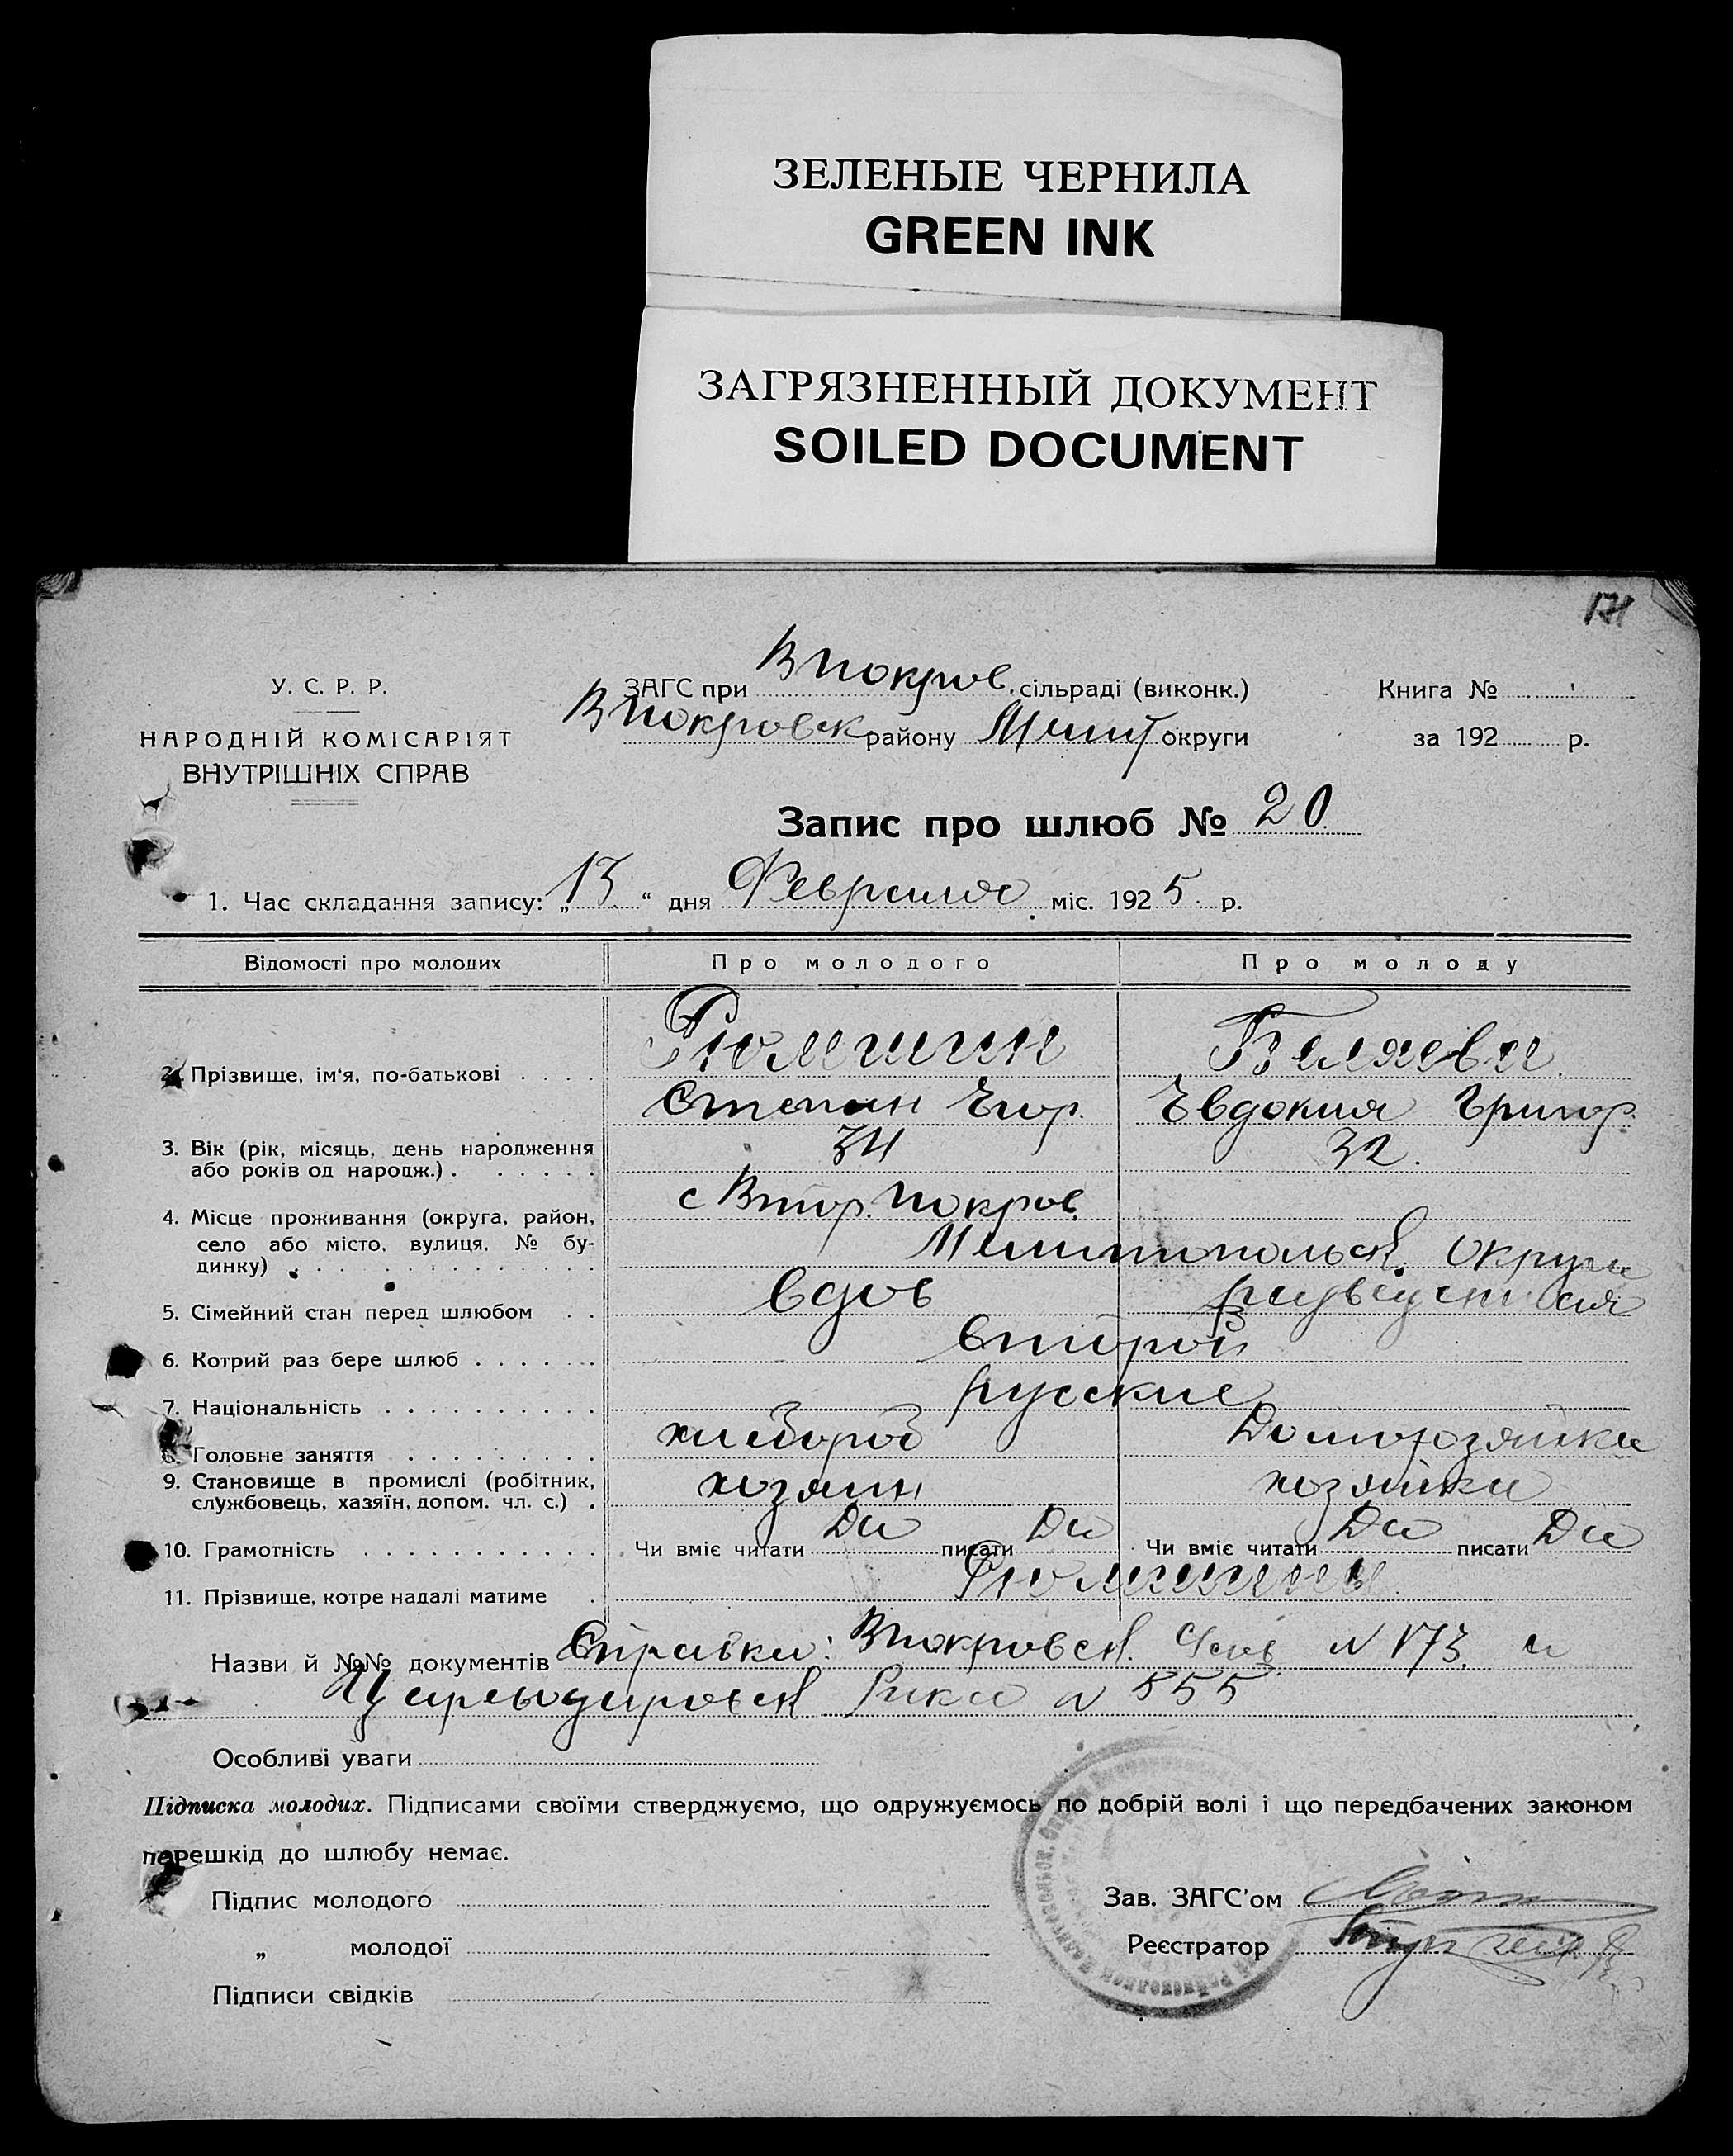 ЗЕЛЕНЫЕ ЧЕРНИЛА
GREEN INK
ЗАГРЯЗНЕННЫЙ ДОКУМЕНТ
SOILED DOCUMENT
171
У. С. Р. Р.
НАРОДНІЙ КОМІСАРІЯТ
ВНУТРІШНІХ СПРАВ
ЗАГС при ВПокров. сільраді (виконк.)
ВПокровск району Мелит округи
Книга №
за 192 р.
Запис про шлюб № 20
1. Час складання запису: „13“ дня Февраля міс. 1925 р.
Відомості про молодих Про молодого Про молоду
2. Прізвище, ім'я, по-батькові Рюмшин Беляева
Степан Егор. Евдокия Григор.
3. Вік (рік, місяць, день народження 34 32.
або років од народж.)
4. Місце проживання (округа, район, с Втор. Покров.
село або місто, вулиця, № бу- Мелитопольск. округи
динку)
5. Сімейний стан перед шлюбом вдов
6. Котрий раз бере шлюб второй
7. Національність русские
8. Головне заняття хлебороб Домохозяйка
9. Становище в промислі (робітник, хозяин хозяйка
службовець, хазяїн, допом. чл. с.)
10. Грамотність Чи вміє читати Да писати Да Чи вміє читати Да писати Да
11. Прізвище, котре надалі матиме Рюмшины
Назви й №№ документів Справки: ВПокровск. N 173. и
Рика N 555
Особливі уваги
Підписка молодих. Підписами своїми стверджуємо, що одружуємось по добрій волі і що передбачених законом
перешкід до шлюбу немає.
Підпис молодого
„ молодої
Підписи свідків
Зав. ЗАГС'ом
Реєстратор